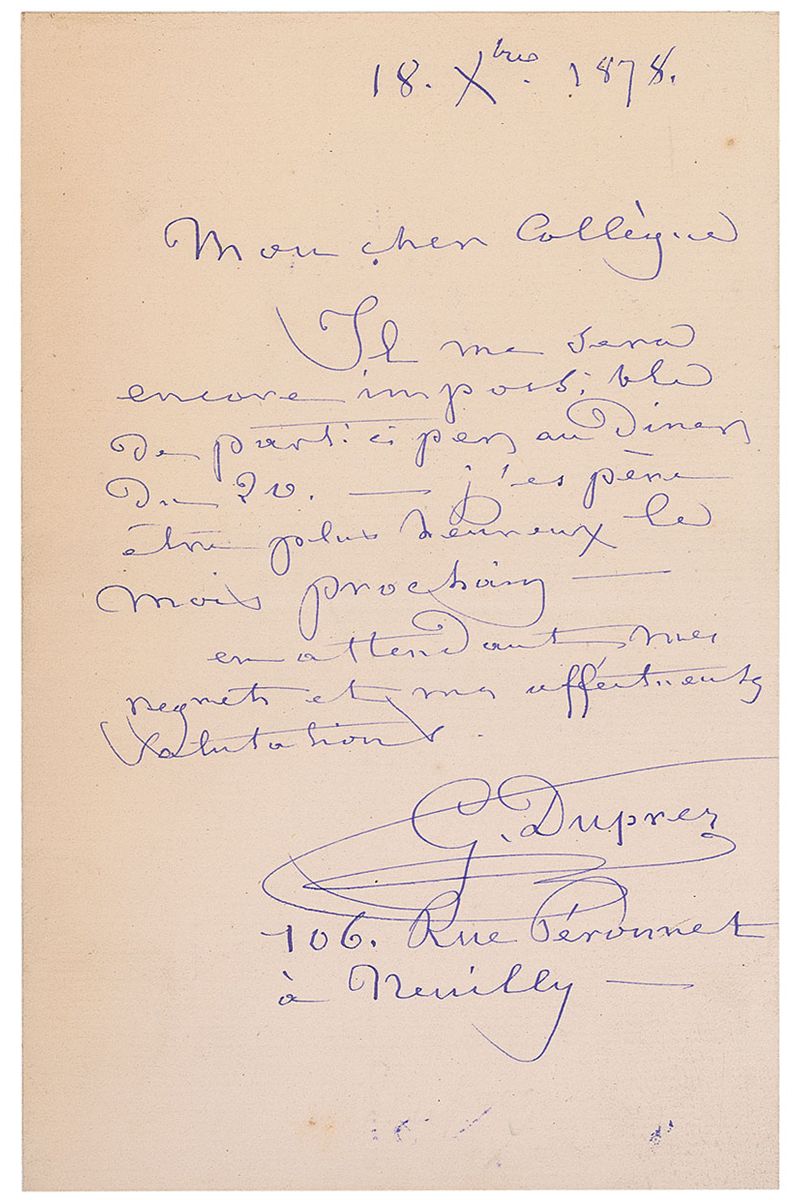 18. Xbre. 1878.
Mon cher Collègue
Il me sera
encore impossible
de participer au Diner
du 20. — j'espère
être plus heureux le
mois prochain —
en attendant mes
regrets et mes affectueuses
salutations.
G. Duprez
106. Rue Péronnet
à Neuilly —